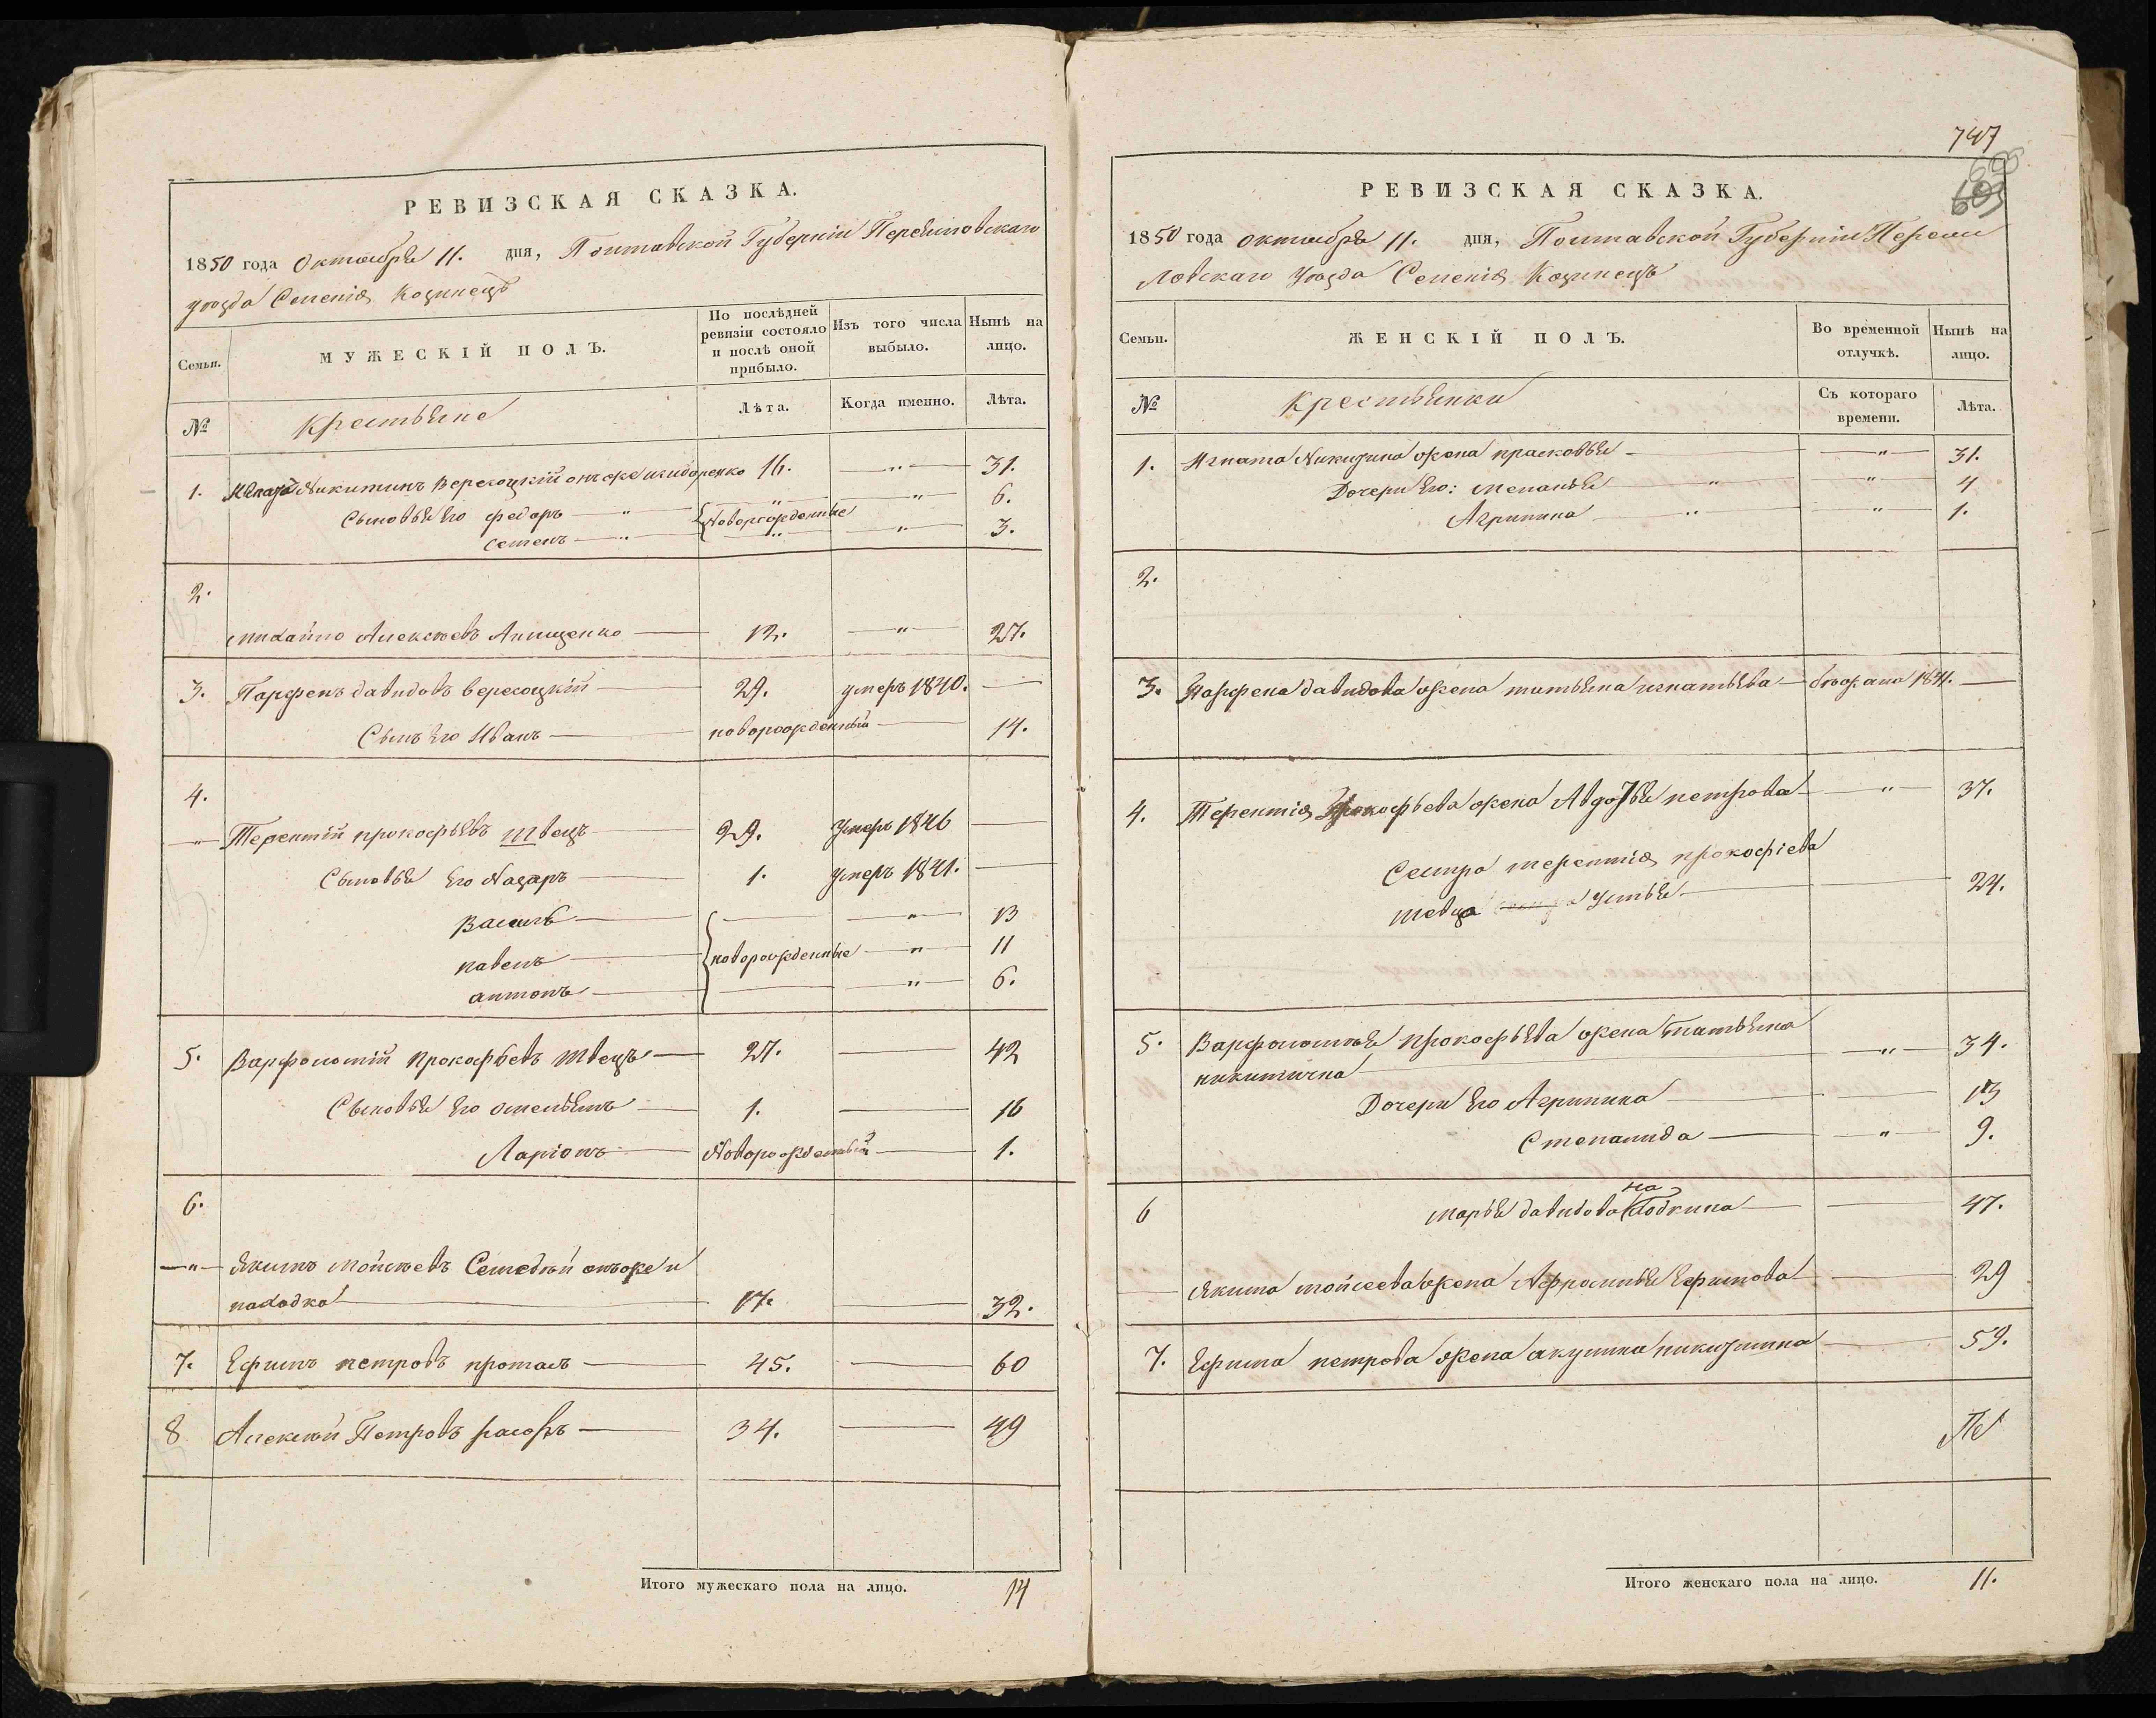 РЕВИЗСКАЯ СКАЗКА.
1850 года Октября 11. дня, Полтавской Губерніи Переяловскаго
уезда Селенія Козинецъ
Семьи.
МУЖЕСКІЙ ПОЛЪ.
По послѣдней ревизіи состояло и послѣ оной прибыло.
Изъ того числа выбыло.
Нынѣ на лицо.
№
Крестьяне
Лѣта.
Когда именно.
Лѣта.
1. Игнатъ Никитинъ Вересоцкій онъ же 16. " 31.
Сыновья Его федоръ " { Новорожденные " 6.
семенъ " " 3.
2.
михайло Алексеевъ Анищенко 12. " 27.
3. Парфенъ давидовъ вересоцкій 29. умеръ 1840.
Сынъ Его Иванъ новорожденный 14.
4.
" Терентій прокофьевъ швецъ 29. Умеръ 1846
Сыновья Его Назаръ 1. умеръ 1841.
Василь " 13
павелъ новорожденные " 11
антонъ " 6.
5. Варфоломій Прокофьевъ Швецъ 27. 42
Сыновья Его омельянъ 1. 16
Ларіонъ Новорожденный 1.
6.
" Якимъ Мойсеевъ онъже и
находка 17. 32.
7. Ефимъ петровъ 45. 60
8 Алексѣй Петровъ 34. 49
Итого мужескаго пола на лицо. 14
747
РЕВИЗСКАЯ СКАЗКА.
1850 года октября 11. дня, Полтавской Губерніи Переяс
ловскаго Уезда Селенія Козинецъ
Семьи.
ЖЕНСКІЙ ПОЛЪ.
Во временной отлучкѣ.
Нынѣ на лицо.
№
Крестьянки
Съ котораго времени.
Лѣта.
1. Игната Никитина жена прасковья " 31.
Дочери Его: меланья " " 4
Агрипина " " 1.
2.
3. Парфена давидова жена татьяна игнатьева 1841.
4. Терентія Прокофьева жена Авдотья петрова " 37.
Сестра терентія прокофіева
швеца Устья 24.
5. Варфоломея прокофьева жена татьяна
никитична " 34.
Дочери Его Агрипина 13
Степанида " 9.
6 марья давидова 47.
Якима мойсеева жена Афросинья Ефимова 29
7. Ефима петрова жена акулина никитина 59.
Итого женскаго пола на лицо. 11.